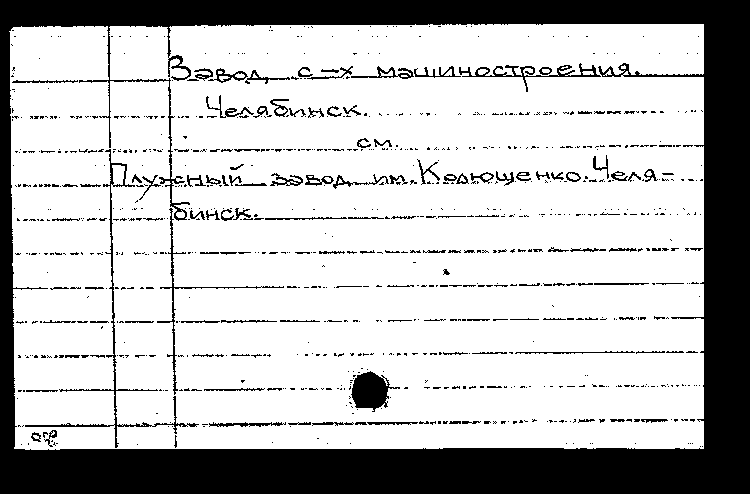 Завод с-х машиностроения.
Челябинск.
см.
Плужный завод им. Колющенко. Челя-
бинск.